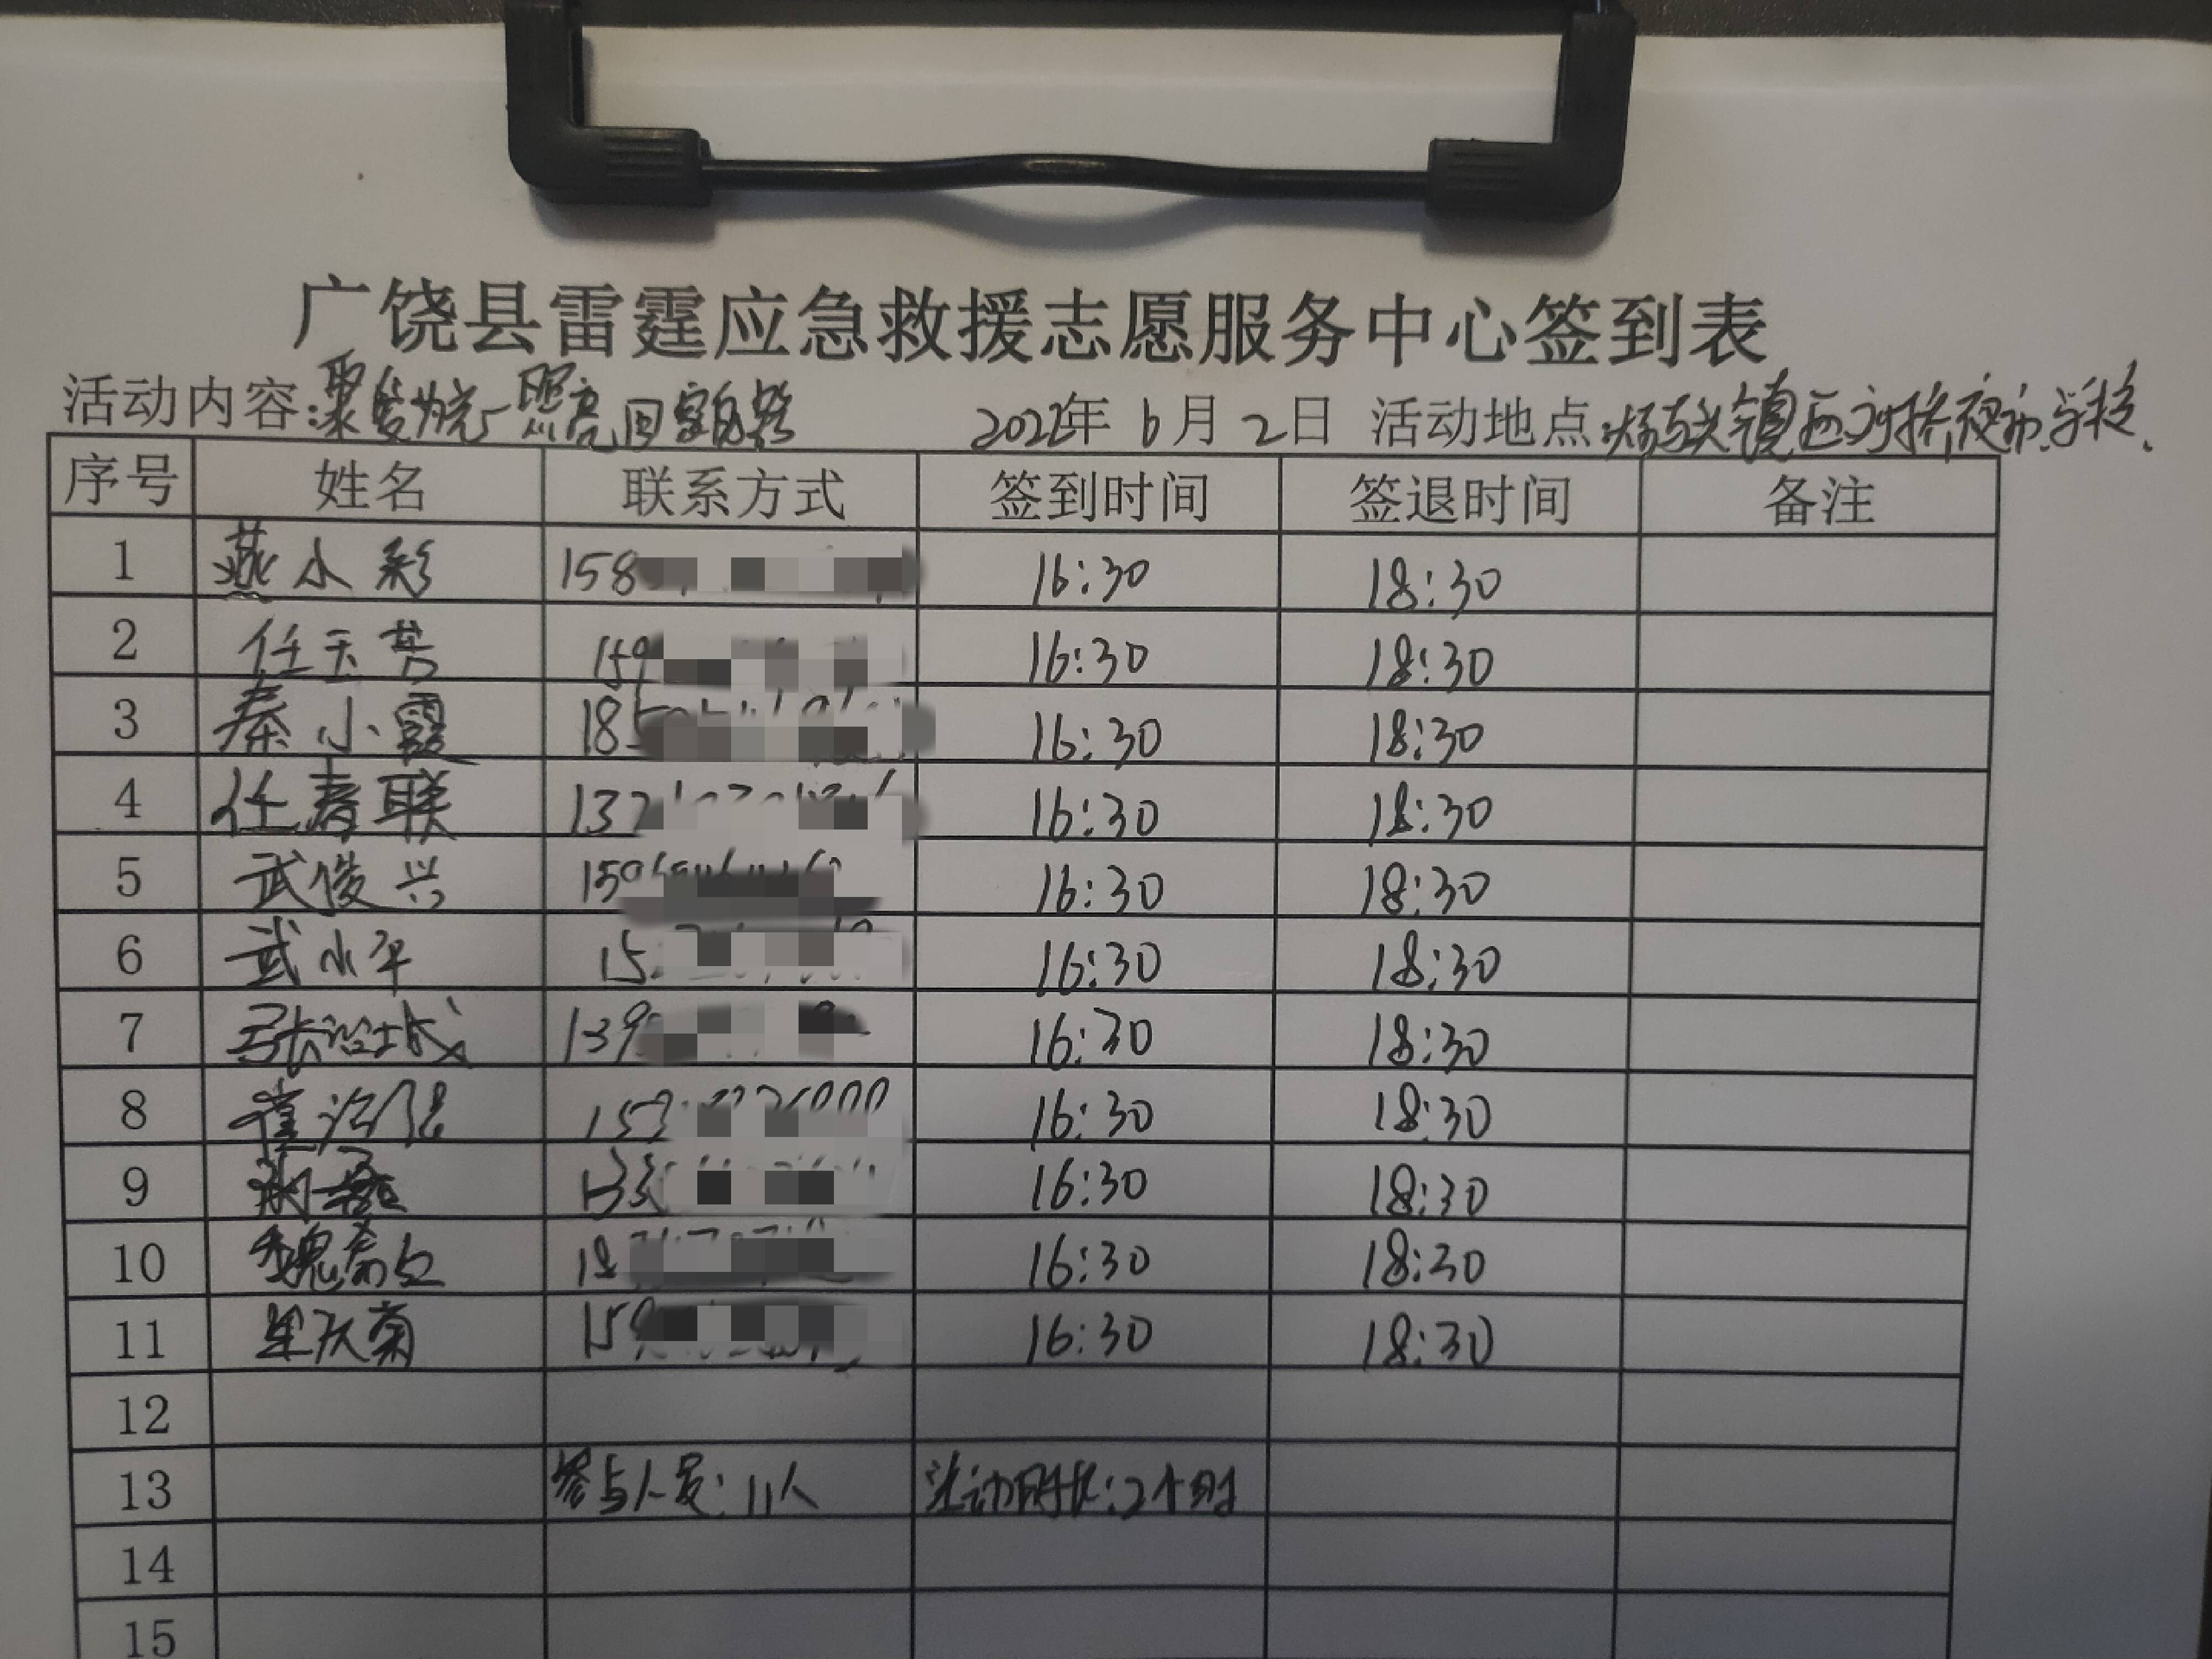 广饶县雷霆应急救援志愿服务中心签到表
活动内容:聚萤为炬 照亮回家的路 2022年6月2日 活动地点:
序号 姓名 联系方式 签到时间 签退时间 备注
1 燕小彩 158 16:30 18:30
2 任玉芳 159 16:30 18:30
3 秦小霞 185 16:30 18:30
4 任春联 132 16:30 18:30
5 武俊兴 159 16:30 18:30
6 武小平 15 16:30 18:30
7 张治城 139 16:30 18:30
8 崔 153 16:30 18:30
9 133 16:30 18:30
10 魏 红 18 16:30 18:30
11 菊 159 16:30 18:30
12
13 参与人员:11人 活动时长:2个时
14
15